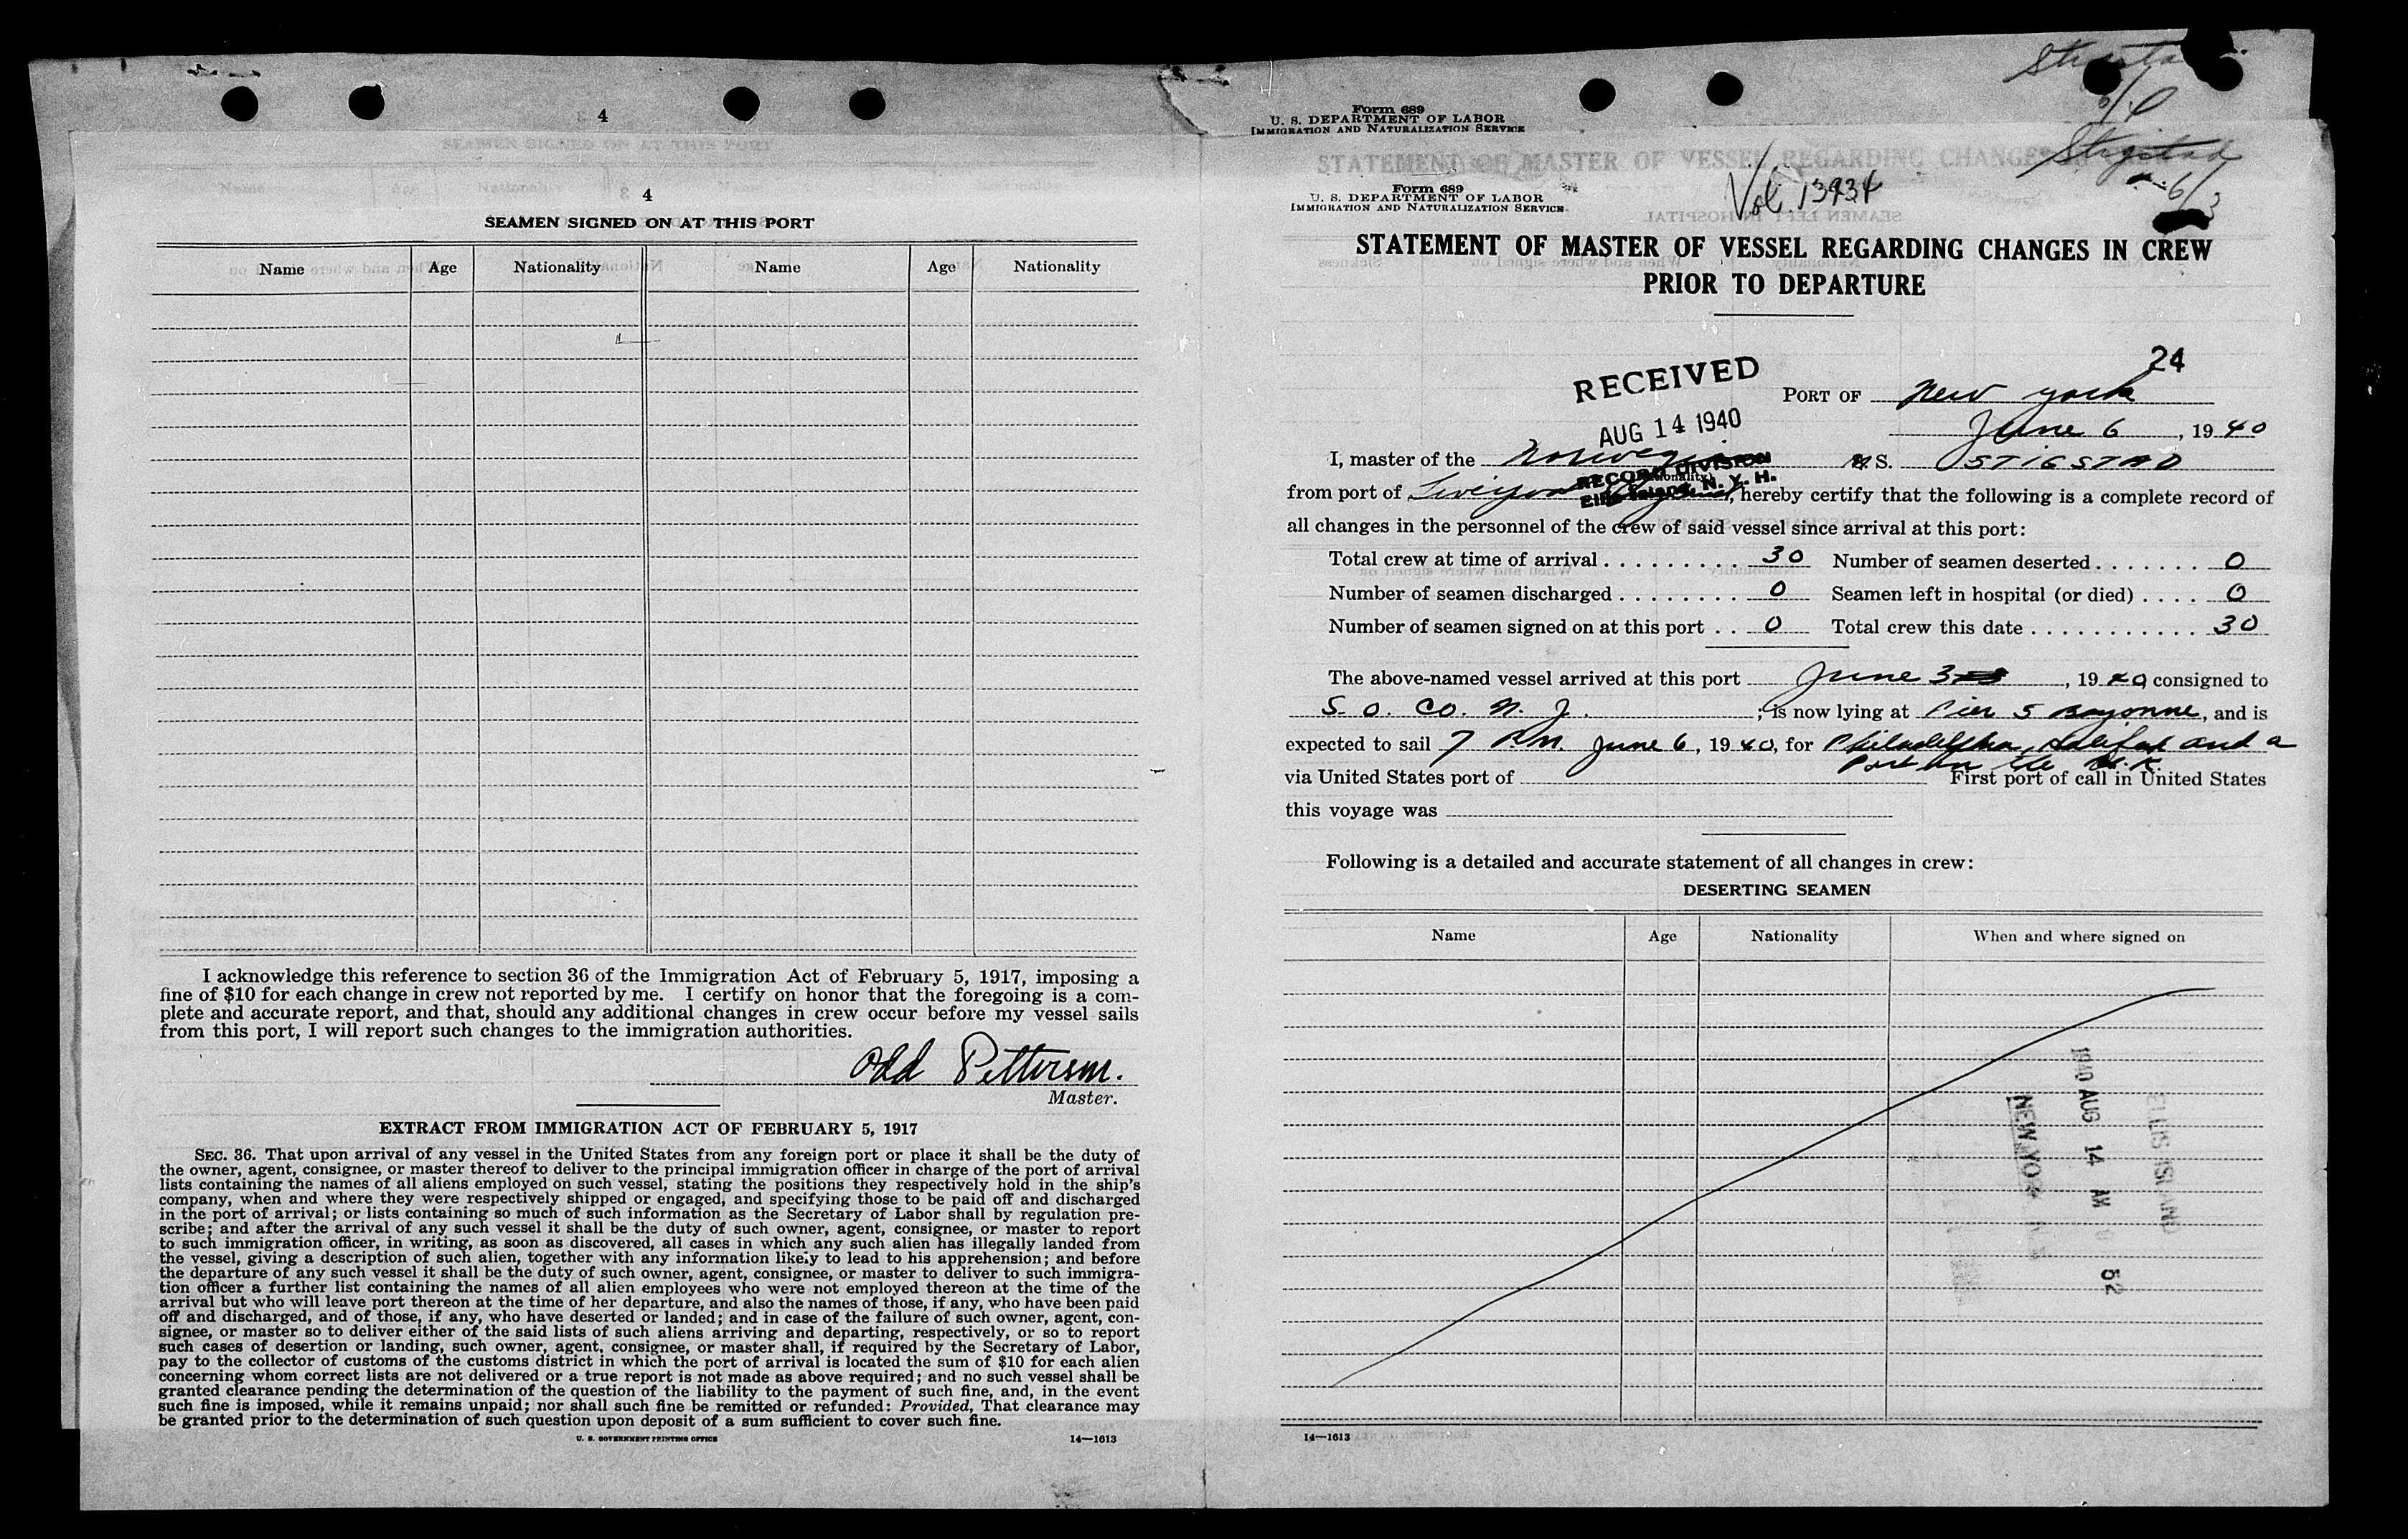 4
4
SEAMEN SIGNED ON AT THIS PORT
Name Age Nationality Name Age Nationality
I acknowledge this reference to section 36 of the Immigration Act of February 5, 1917, imposing a
fine of $10 for each change in crew not reported by me. I certify on honor that the foregoing is a com-
plete and accurate report, and that, should any additional changes in crew occur before my vessel sails
from this port, I will report such changes to the immigration authorities.
Odd Pettersen.
Master.
EXTRACT FROM IMMIGRATION ACT OF FEBRUARY 5, 1917
SEC. 36. That upon arrival of any vessel in the United States from any foreign port or place it shall be the duty of
the owner, agent, consignee, or master thereof to deliver to the principal immigration officer in charge of the port of arrival
lists containing the names of all aliens employed on such vessel, stating the positions they respectively hold in the ship's
company, when and where they were respectively shipped or engaged, and specifying those to be paid off and discharged
in the port of arrival; or lists containing so much of such information as the Secretary of Labor shall by regulation pre-
scribe; and after the arrival of any such vessel it shall be the duty of such owner, agent, consignee, or master to report
to such immigration officer, in writing, as soon as discovered, all cases in which any such alien has illegally landed from
the vessel, giving a description of such alien, together with any information likely to lead to his apprehension; and before
the departure of any such vessel it shall be the duty of such owner, agent, consignee, or master to deliver to such immigra-
tion officer a further list containing the names of all alien employees who were not employed thereon at the time of the
arrival but who will leave port thereon at the time of her departure, and also the names of those, if any, who have been paid
off and discharged, and of those, if any, who have deserted or landed; and in case of the failure of such owner, agent, con-
signee, or master so to deliver either of the said lists of such aliens arriving and departing, respectively, or so to report
such cases of desertion or landing, such owner, agent, consignee, or master shall, if required by the Secretary of Labor,
pay to the collector of customs of the customs district in which the port of arrival is located the sum of $10 for each alien
concerning whom correct lists are not delivered or a true report is not made as above required; and no such vessel shall be
granted clearance pending the determination of the question of the liability to the payment of such fine, and, in the event
such fine is imposed, while it remains unpaid; nor shall such fine be remitted or refunded: Provided, That clearance may
be granted prior to the determination of such question upon deposit of a sum sufficient to cover such fine.
U. S. GOVERNMENT PRINTING OFFICE 14—1613
Form 689
U. S. DEPARTMENT OF LABOR
IMMIGRATION AND NATURALIZATION SERVICE
STATEMENT OF MASTER OF VESSEL REGARDING CHANGES
Stigstad
6/3
Form 689
U. S. DEPARTMENT OF LABOR
IMMIGRATION AND NATURALIZATION SERVICE
Vol. 13934
STATEMENT OF MASTER OF VESSEL REGARDING CHANGES IN CREW
PRIOR TO DEPARTURE
24
RECEIVED
AUG 14 1940
RECORD DIVISION
Ellis Island, N. Y. H.
PORT OF New York
June 6, 1940
I, master of the Norwegian M.S. STIGSTAD
from port of Liverpool England, hereby certify that the following is a complete record of
all changes in the personnel of the crew of said vessel since arrival at this port:
Total crew at time of arrival . . . . . . . . . 30 Number of seamen deserted . . . . . . . 0
Number of seamen discharged . . . . . . . . 0 Seamen left in hospital (or died) . . . . 0
Number of seamen signed on at this port . . 0 Total crew this date . . . . . . . . . . . 30
The above-named vessel arrived at this port June 3, 1940 consigned to
S. O. Co. N. J.; is now lying at Pier 5 Bayonne, and is
expected to sail 7 P.M. June 6, 1940, for Philadelphia, Halifax and a
port in the U.K.
via United States port of First port of call in United States
this voyage was
Following is a detailed and accurate statement of all changes in crew:
DESERTING SEAMEN
Name Age Nationality When and where signed on
ELLIS ISLAND
1940 AUG 14 AM 52
NEW YORK
14—1613